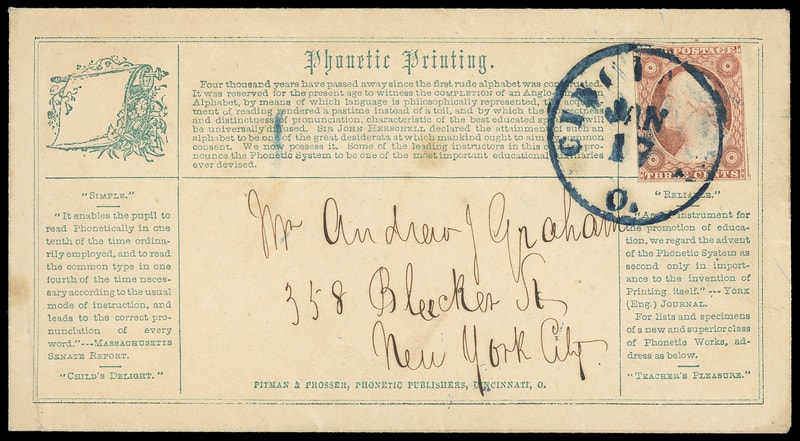 Phonetic Printing.
Four thousand years have passed away since the first rude alphabet was constructed.
It was reserved for the present age to witness the COMPLETION of an Anglo-
Alphabet, by means of which language is philosophically represented, the acquire-
ment of reading rendered a pastime instead of a toil, and by which the correctness
and distinctness of pronunciation, characteristic of the best educated speakers will
be universally diffused. SIR JOHN HERSCHELL declared the attainment of such an
alphabet to be one of the great desiderata at which mankind ought to aim by common
consent. We now possess it. Some of the leading instructors in this country pro-
nounce the Phonetic System to be one of the most important educational auxiliaries
ever devised.
POSTAGE
THREE CENTS
JAN
17
O.
"SIMPLE."
"It enables the pupil to
read Phonetically in one
tenth of the time ordina-
rily employed, and to read
the common type in one
fourth of the time neces-
sary according to the usual
mode of instruction, and
leads to the correct pro-
nunciation of every
word."---MASSACHUSETTS
SENATE REPORT.
"CHILD'S DELIGHT."
Mr Andrew J Graham
358 Bleecker St
New York City.
"RELIABLE."
"As an instrument for
the promotion of educa-
tion, we regard the advent
of the Phonetic System as
second only in import-
ance to the invention of
Printing itself."--- YORK
(Eng.) JOURNAL.
For lists and specimens
of a new and superior class
of Phonetic Works, ad-
dress as below.
"TEACHER'S PLEASURE."
PITMAN & PROSSER, PHONETIC PUBLISHERS, CINCINNATI, O.